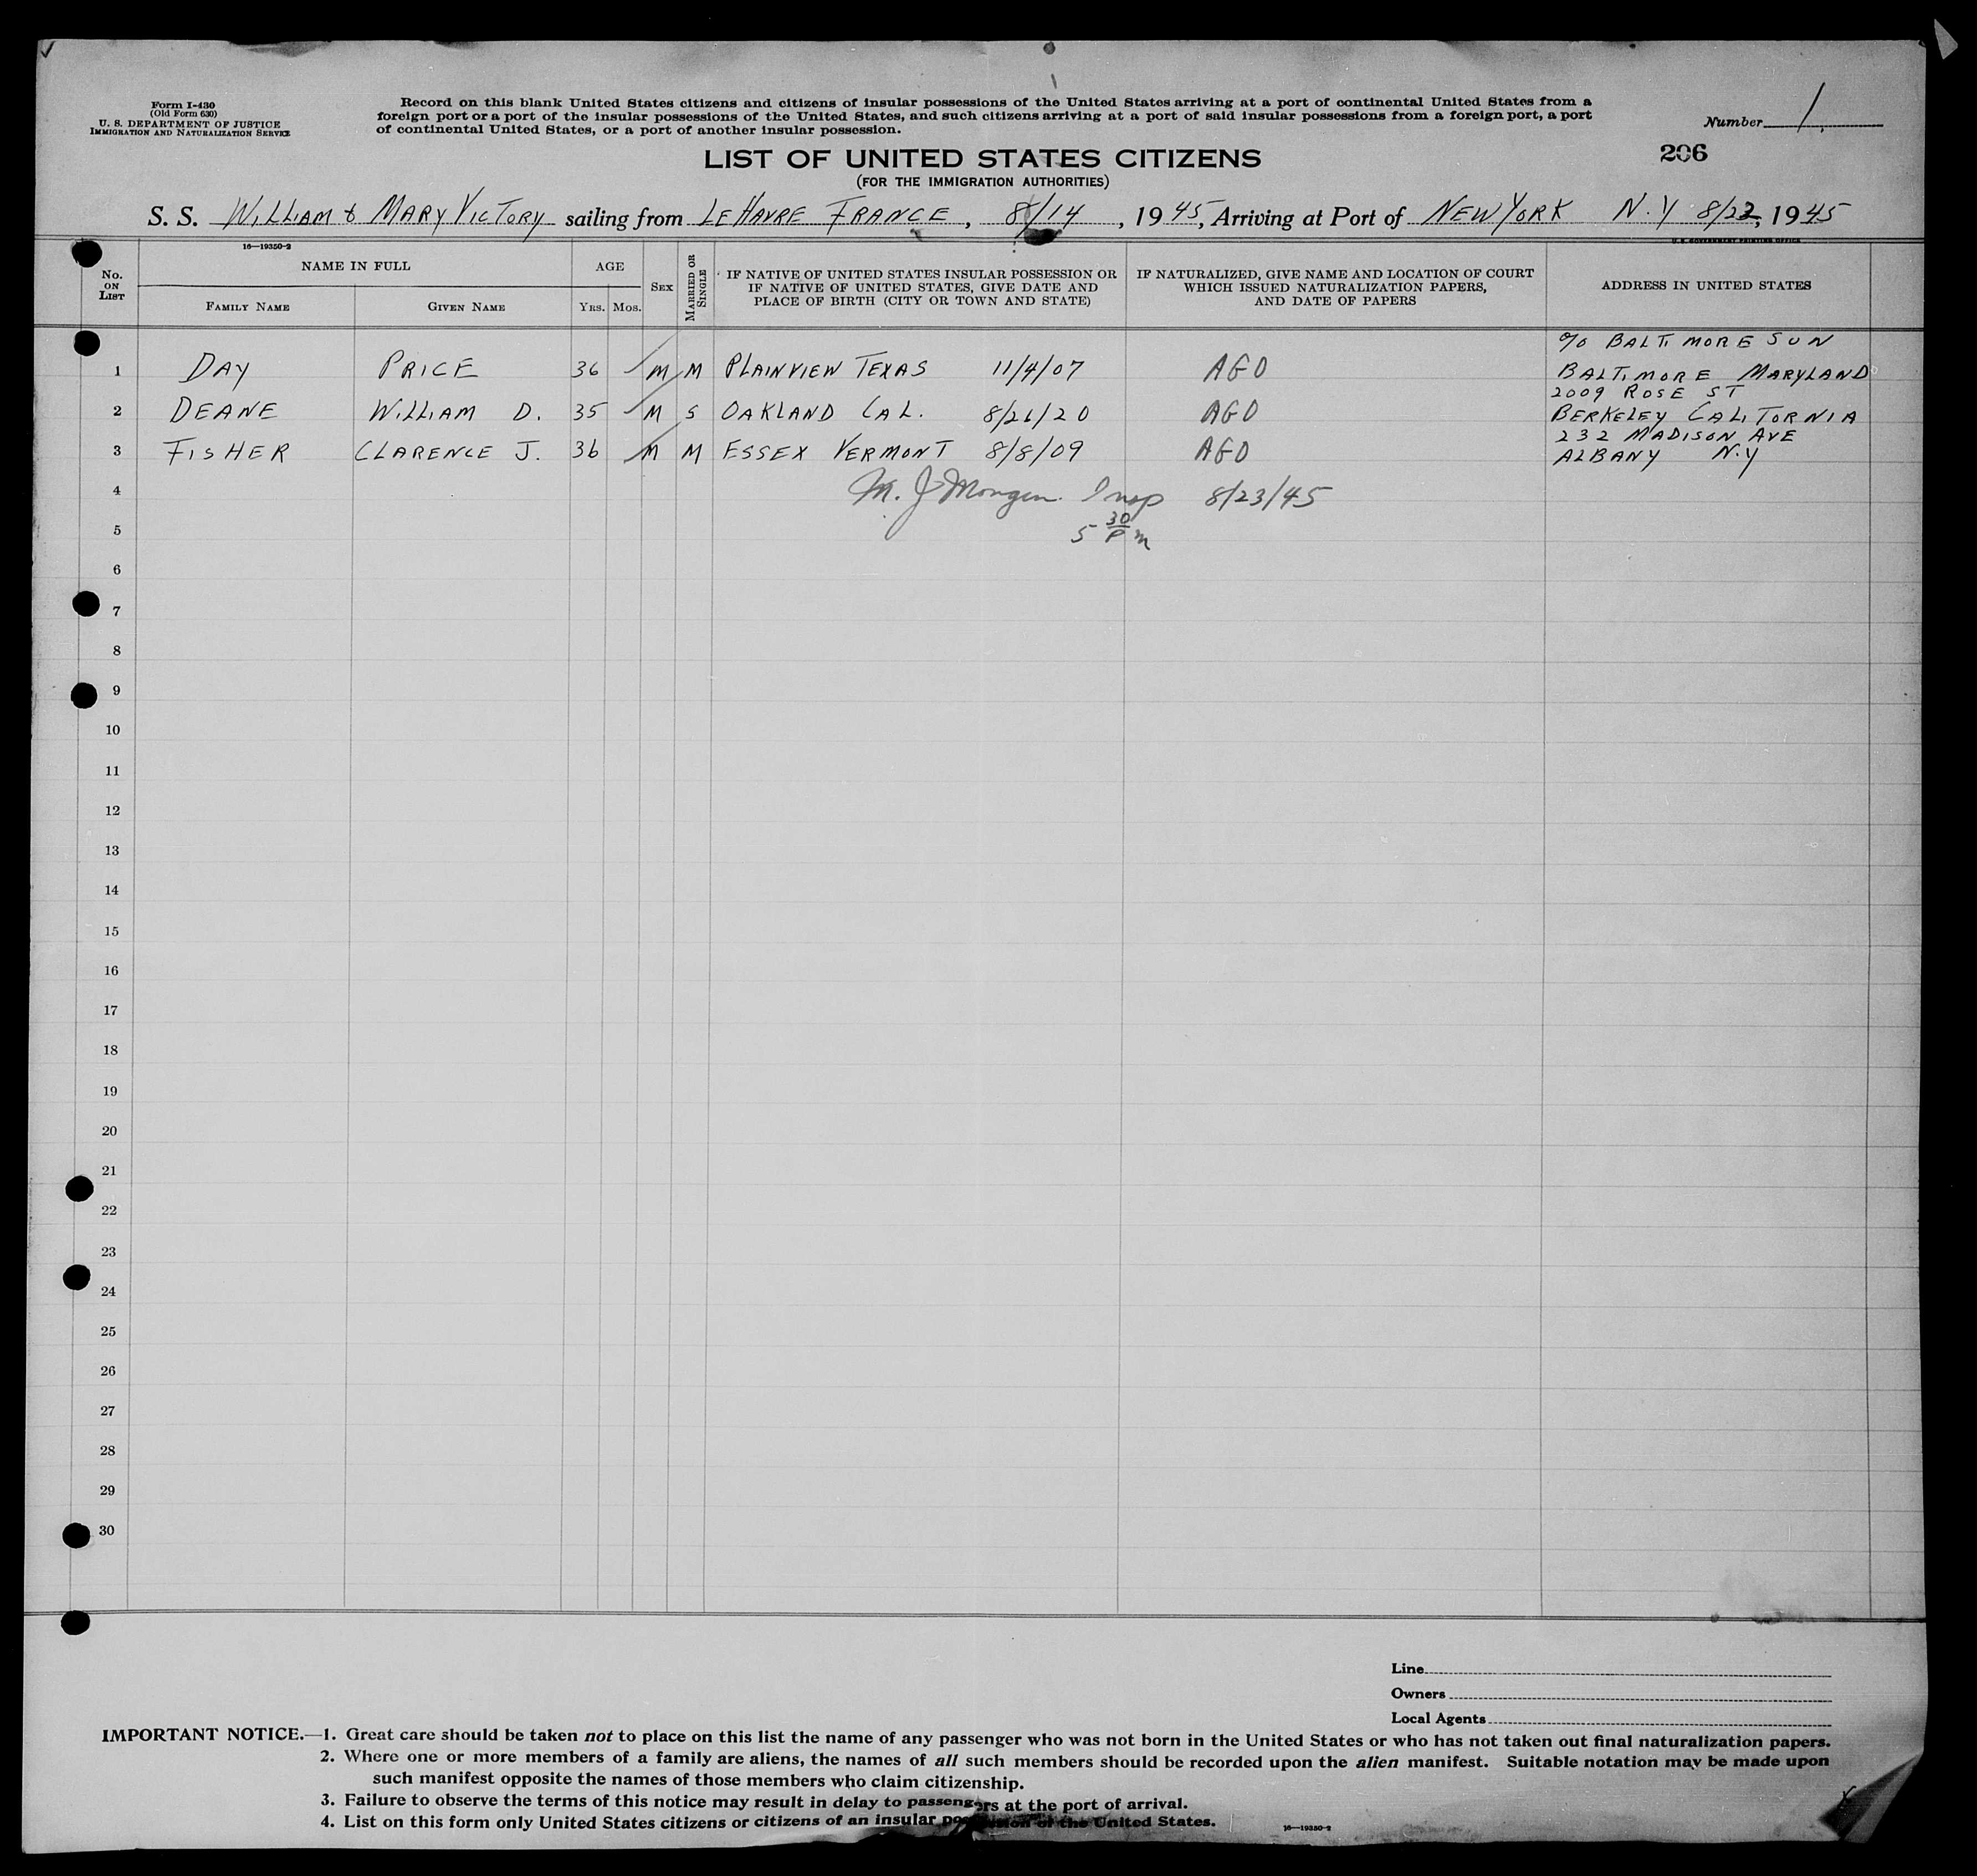 Form I-430
(Old Form 630)
U. S. DEPARTMENT OF JUSTICE
IMMIGRATION AND NATURALIZATION SERVICE
Record on this blank United States citizens and citizens of insular possessions of the United States arriving at a port of continental United States from a
foreign port or a port of the insular possessions of the United States, and such citizens arriving at a port of said insular possessions from a foreign port, a port
of continental United States, or a port of another insular possession.
Number 1.
206
LIST OF UNITED STATES CITIZENS
(FOR THE IMMIGRATION AUTHORITIES)
S. S. WILLIAM & MARY VICTORY sailing from LEHAVRE FRANCE, 8/14, 1945, Arriving at Port of NEW YORK N.Y 8/22, 1945
16—19350-2
U. S. GOVERNMENT PRINTING OFFICE
No. ON LIST
NAME IN FULL
FAMILY NAME
GIVEN NAME
AGE
YRS.
MOS.
SEX
MARRIED OR SINGLE
IF NATIVE OF UNITED STATES INSULAR POSSESSION OR
IF NATIVE OF UNITED STATES, GIVE DATE AND
PLACE OF BIRTH (CITY OR TOWN AND STATE)
IF NATURALIZED, GIVE NAME AND LOCATION OF COURT
WHICH ISSUED NATURALIZATION PAPERS,
AND DATE OF PAPERS
ADDRESS IN UNITED STATES
% BALTIMORE SUN
1 DAY PRICE 36 M M PLAINVIEW TEXAS 11/4/07 AGO BALTIMORE MARYLAND
2009 ROSE ST
2 DEANE WILLIAM D. 35 M S OAKLAND CAL. 8/26/20 AGO BERKELEY CALIFORNIA
232 MADISON AVE
3 FISHER CLARENCE J. 36 M M ESSEX VERMONT 8/8/09 AGO ALBANY N.Y
4 M. J. Insp 8/23/45
5 5 30 P m
6
7
8
9
10
11
12
13
14
15
16
17
18
19
20
21
22
23
24
25
26
27
28
29
30
Line
Owners
Local Agents
IMPORTANT NOTICE.—1. Great care should be taken not to place on this list the name of any passenger who was not born in the United States or who has not taken out final naturalization papers.
2. Where one or more members of a family are aliens, the names of all such members should be recorded upon the alien manifest. Suitable notation may be made upon
such manifest opposite the names of those members who claim citizenship.
3. Failure to observe the terms of this notice may result in delay to passengers at the port of arrival.
4. List on this form only United States citizens or citizens of an insular possession of the United States.
16—19350-2